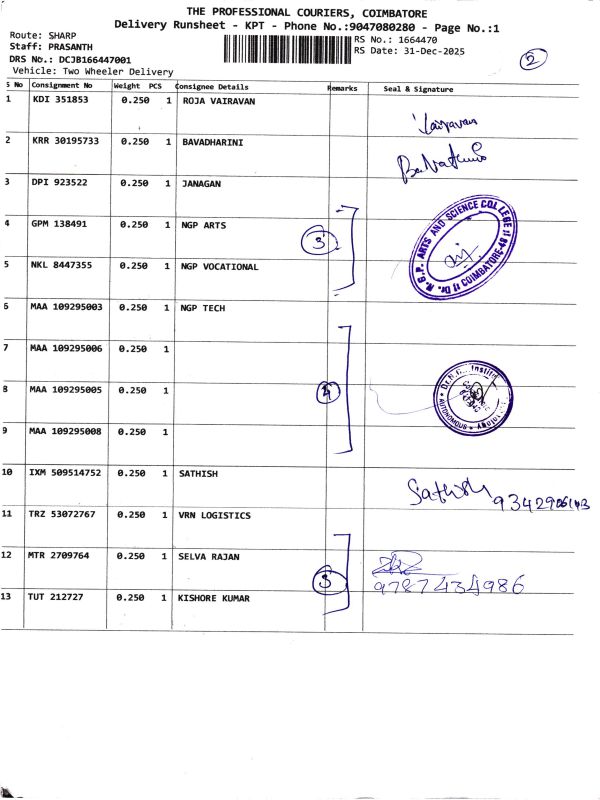 THE PROFESSIONAL COURIERS, COIMBATORE
Delivery Runsheet - KPT - Phone No.:9047080280 - Page No.:1
Route: SHARP
RS No.: 1664470
Staff: PRASANTH
RS Date: 31-Dec-2025
DRS No.: DCJB166447001
2
Vehicle: Two Wheeler Delivery
S No Consignment No Weight PCS Consignee Details Remarks Seal & Signature
1 KDI 351853 0.250 1 ROJA VAIRAVAN Vairavan
2 KRR 30195733 0.250 1 BAVADHARINI
3 DPI 923522 0.250 1 JANAGAN
4 GPM 138491 0.250 1 NGP ARTS 3
Dr. N.G.P. ARTS AND SCIENCE COLLEGE
COIMBATORE-48
5 NKL 8447355 0.250 1 NGP VOCATIONAL
6 MAA 109295003 0.250 1 NGP TECH
7 MAA 109295006 0.250 1
8 MAA 109295005 0.250 1 4
Institu
AUTONOMOUS
9 MAA 109295008 0.250 1
10 IXM 509514752 0.250 1 SATHISH Sathish
11 TRZ 53072767 0.250 1 VRN LOGISTICS
12 MTR 2709764 0.250 1 SELVA RAJAN 3
9787434986
13 TUT 212727 0.250 1 KISHORE KUMAR